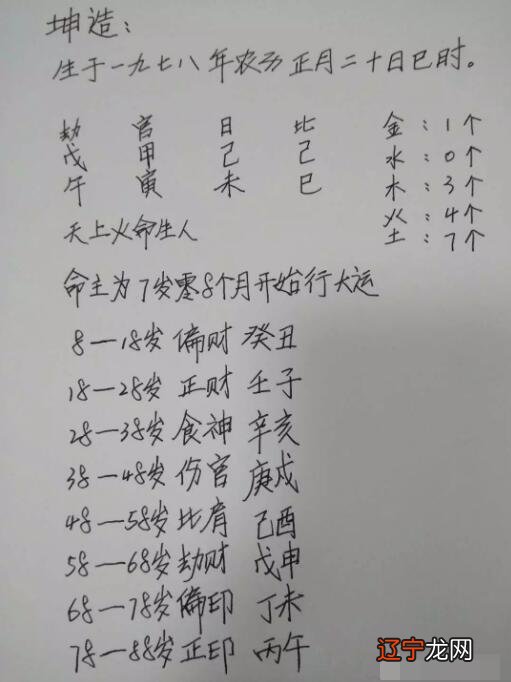 坤造：
生于一九七八年农历正月二十日巳时。
劫 官 日 比 金：1个
戊 甲 己 己 水：0个
午 寅 未 巳 木：3个
火：4个
天上火命生人 土：7个
命主为7岁零8个月开始行大运
8—18岁偏财 癸丑
18—28岁正财 壬子
28—38岁食神 辛亥
38—48岁伤官 庚戌
48—58岁比肩 己酉
58—68岁劫财 戊申
68—78岁偏印 丁未
78—88岁正印 丙午
辽宁龙网